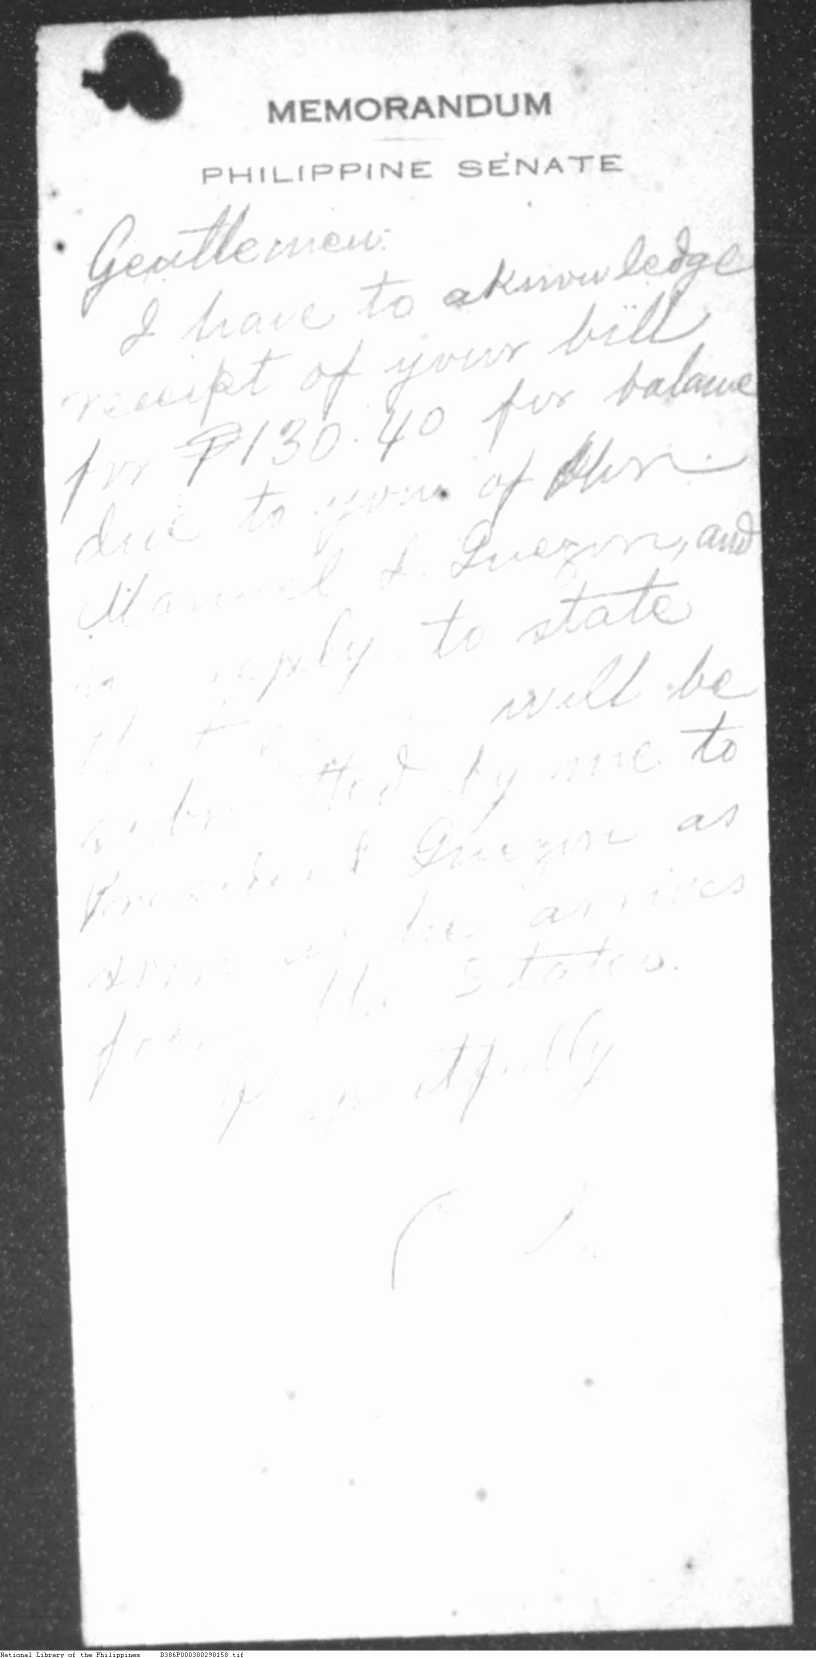 MEMORANDUM
PHILIPPINE SENATE
Gentlemen:
I have to aknowledge
receipt of your bill
for ₱130.40 for balance
due to you of Hon.
Manuel L. Quezon, and
in reply to state
that will be
submitted by me to
President Quezon as
soon as he arrives
from the States.
Respectfully
National Library of the Philippines B386P000300290158.tif